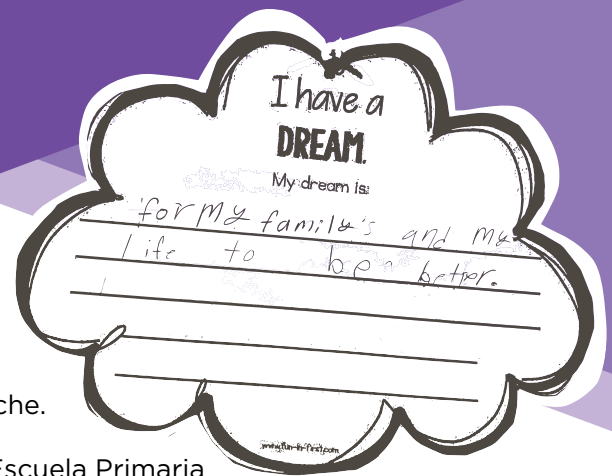 I have a
DREAM.
My dream is:
for my family's and my
life to be better.
www.fun-in-first.com
che.
Escuela Primaria